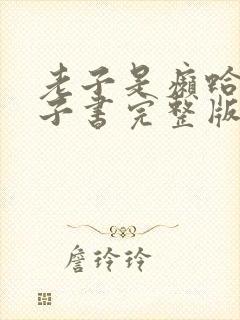 老子是癞蛤
子书完整版
詹玲玲